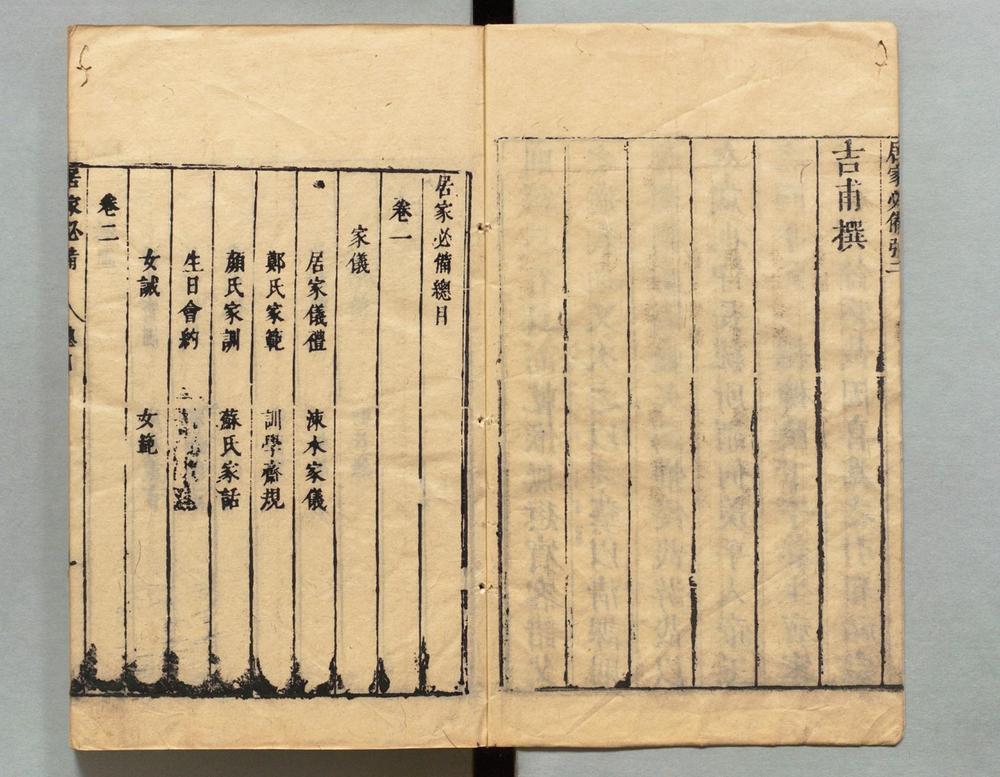 居家必備
吉甫撰
居家必備總目
卷一
家儀
居家儀禮 涑水家儀
鄭氏家範 訓學齋規
顏氏家訓 蘇氏家話
生日會約
女誡 女範
卷二
居家必備